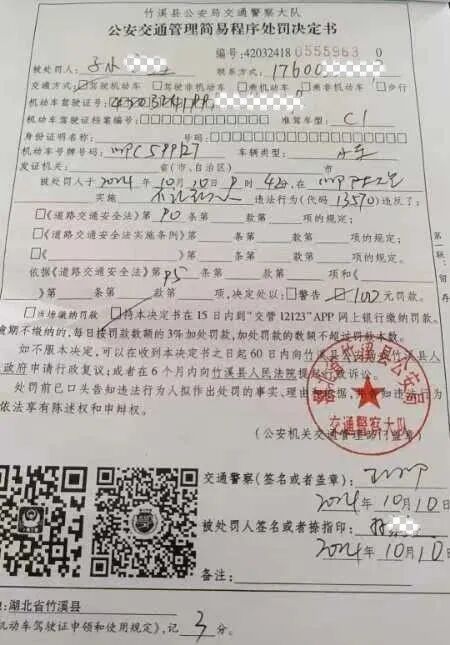 竹溪县公安局交通警察大队
公安交通管理简易程序处罚决定书
编号:42032418 0555963 0
被处罚人: 联系方式:17600
交通方式:□驾驶机动车 □驾驶非机动车 □乘机动车 □乘非机动车 □步行
机动车驾驶证号:
机动车驾驶证档案编号:□□□□□□□□□□□□ 准驾车型: C1
身份证明名称: 号码:□□□□□□□□□□□□□□□□□□
机动车号牌号码: C599D7 车辆类型: 小车
发证机关: 省(市、自治区) 市
被处罚人于2024年10月10日9时42分,在
实施 违法行为(代码13570)违反了:
□《道路交通安全法》第90条第 款第 项的规定;
□《道路交通安全法实施条例》第 条第 款第 项的规定;
□《 》第 条第 款第 项的规定;
依据《道路交通安全法》第95条第 款第 项和《
》第 条第 款第 项,决定处以:□警告 100元罚款。
□当场缴纳罚款 □持本决定书在15日内到“交管12123”APP网上银行缴纳罚款。
逾期不缴纳的,每日按罚款数额的3%加处罚款,加处罚款的数额不超过罚款本数。
如不服本决定,可以在收到本决定书之日起60日内向竹溪县人
政府申请行政复议;或者在6个月内向竹溪县人民法院提起行政诉讼。
处罚前已口头告知违法行为人拟作出处罚的事实、理由和依据,并告知违法行为
依法享有陈述权和申辩权。
湖北省竹溪县公安局
交通警察大队
(公安机关交通管理部门盖章)
交通警察(签名或者盖章):
2024年10月10日
被处罚人签名或者捺指印:
2024年10月10日
备注:
:湖北省竹溪县
机动车驾驶证申领和使用规定》,记3分。
第一联
存